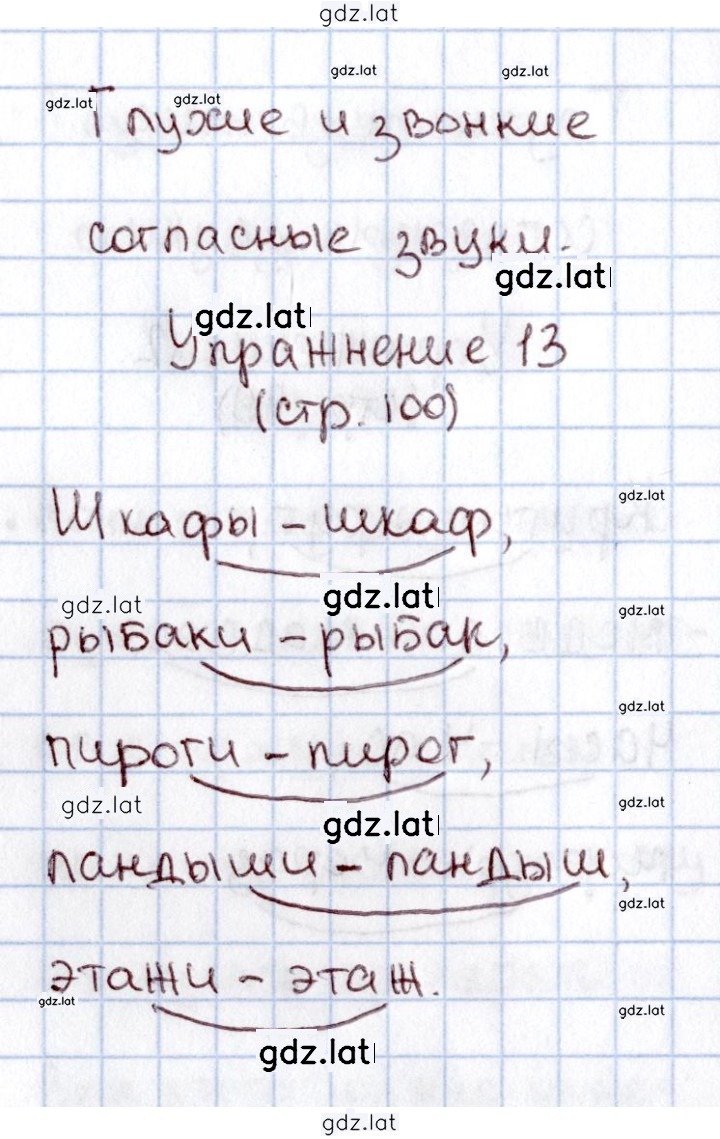 gdz.lat
gdz.lat gdz.lat
gdz.lat gdz.lat
Глухие и звонкие
согласные звуки.
gdz.lat
gdz.lat
Упражнение 13
(стр. 100)
gdz.lat
Шкафы – шкаф,
gdz.lat gdz.lat gdz.lat
рыбаки – рыбак,
gdz.lat
пироги – пирог,
gdz.lat gdz.lat gdz.lat
ландыши – ландыш,
gdz.lat
этажи – этаж.
gdz.lat gdz.lat
gdz.lat
gdz.lat